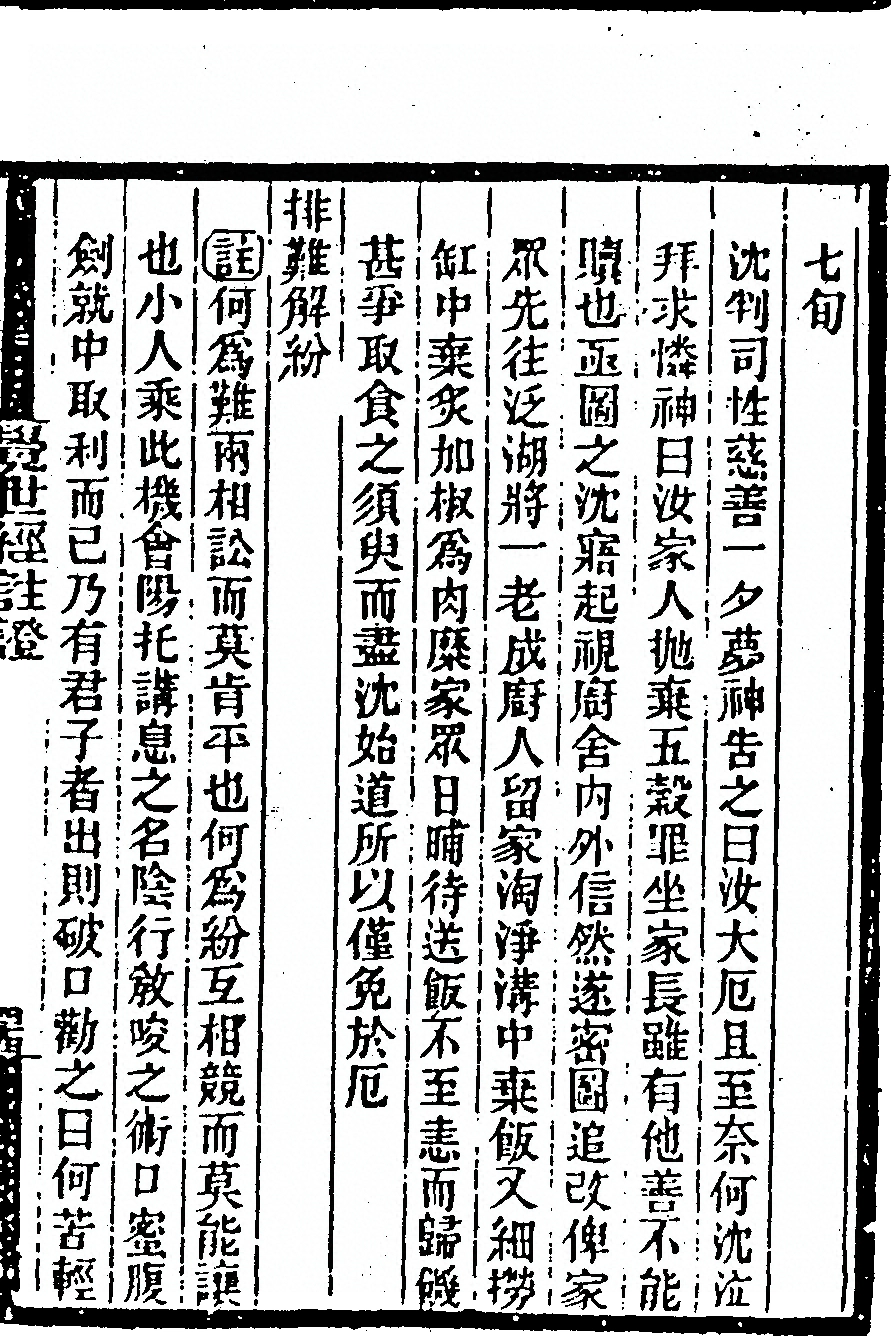 七旬
沈判司性慈善一夕夢神告之曰汝大厄且至奈何沈泣
拜求憐神曰汝家人拋棄五穀罪坐家長雖有他善不能
贖也亟圖之沈寤起視廚舍內外信然遂密圖追改俾家
眾先往泛湖將一老成廚人留家淘淨溝中棄飯又細撈
缸中棄炙加椒為肉糜家眾日晡待送飯不至恚而歸饑
甚爭取食之須臾而盡沈始道所以僅免於厄
排難解紛
註何為難兩相訟而莫肯平也何為紛互相競而莫能讓
也小人乘此機會陽托講息之名陰行教唆之術口蜜腹
劍就中取利而已乃有君子者出則破口勸之曰何苦輕
覺世經註證